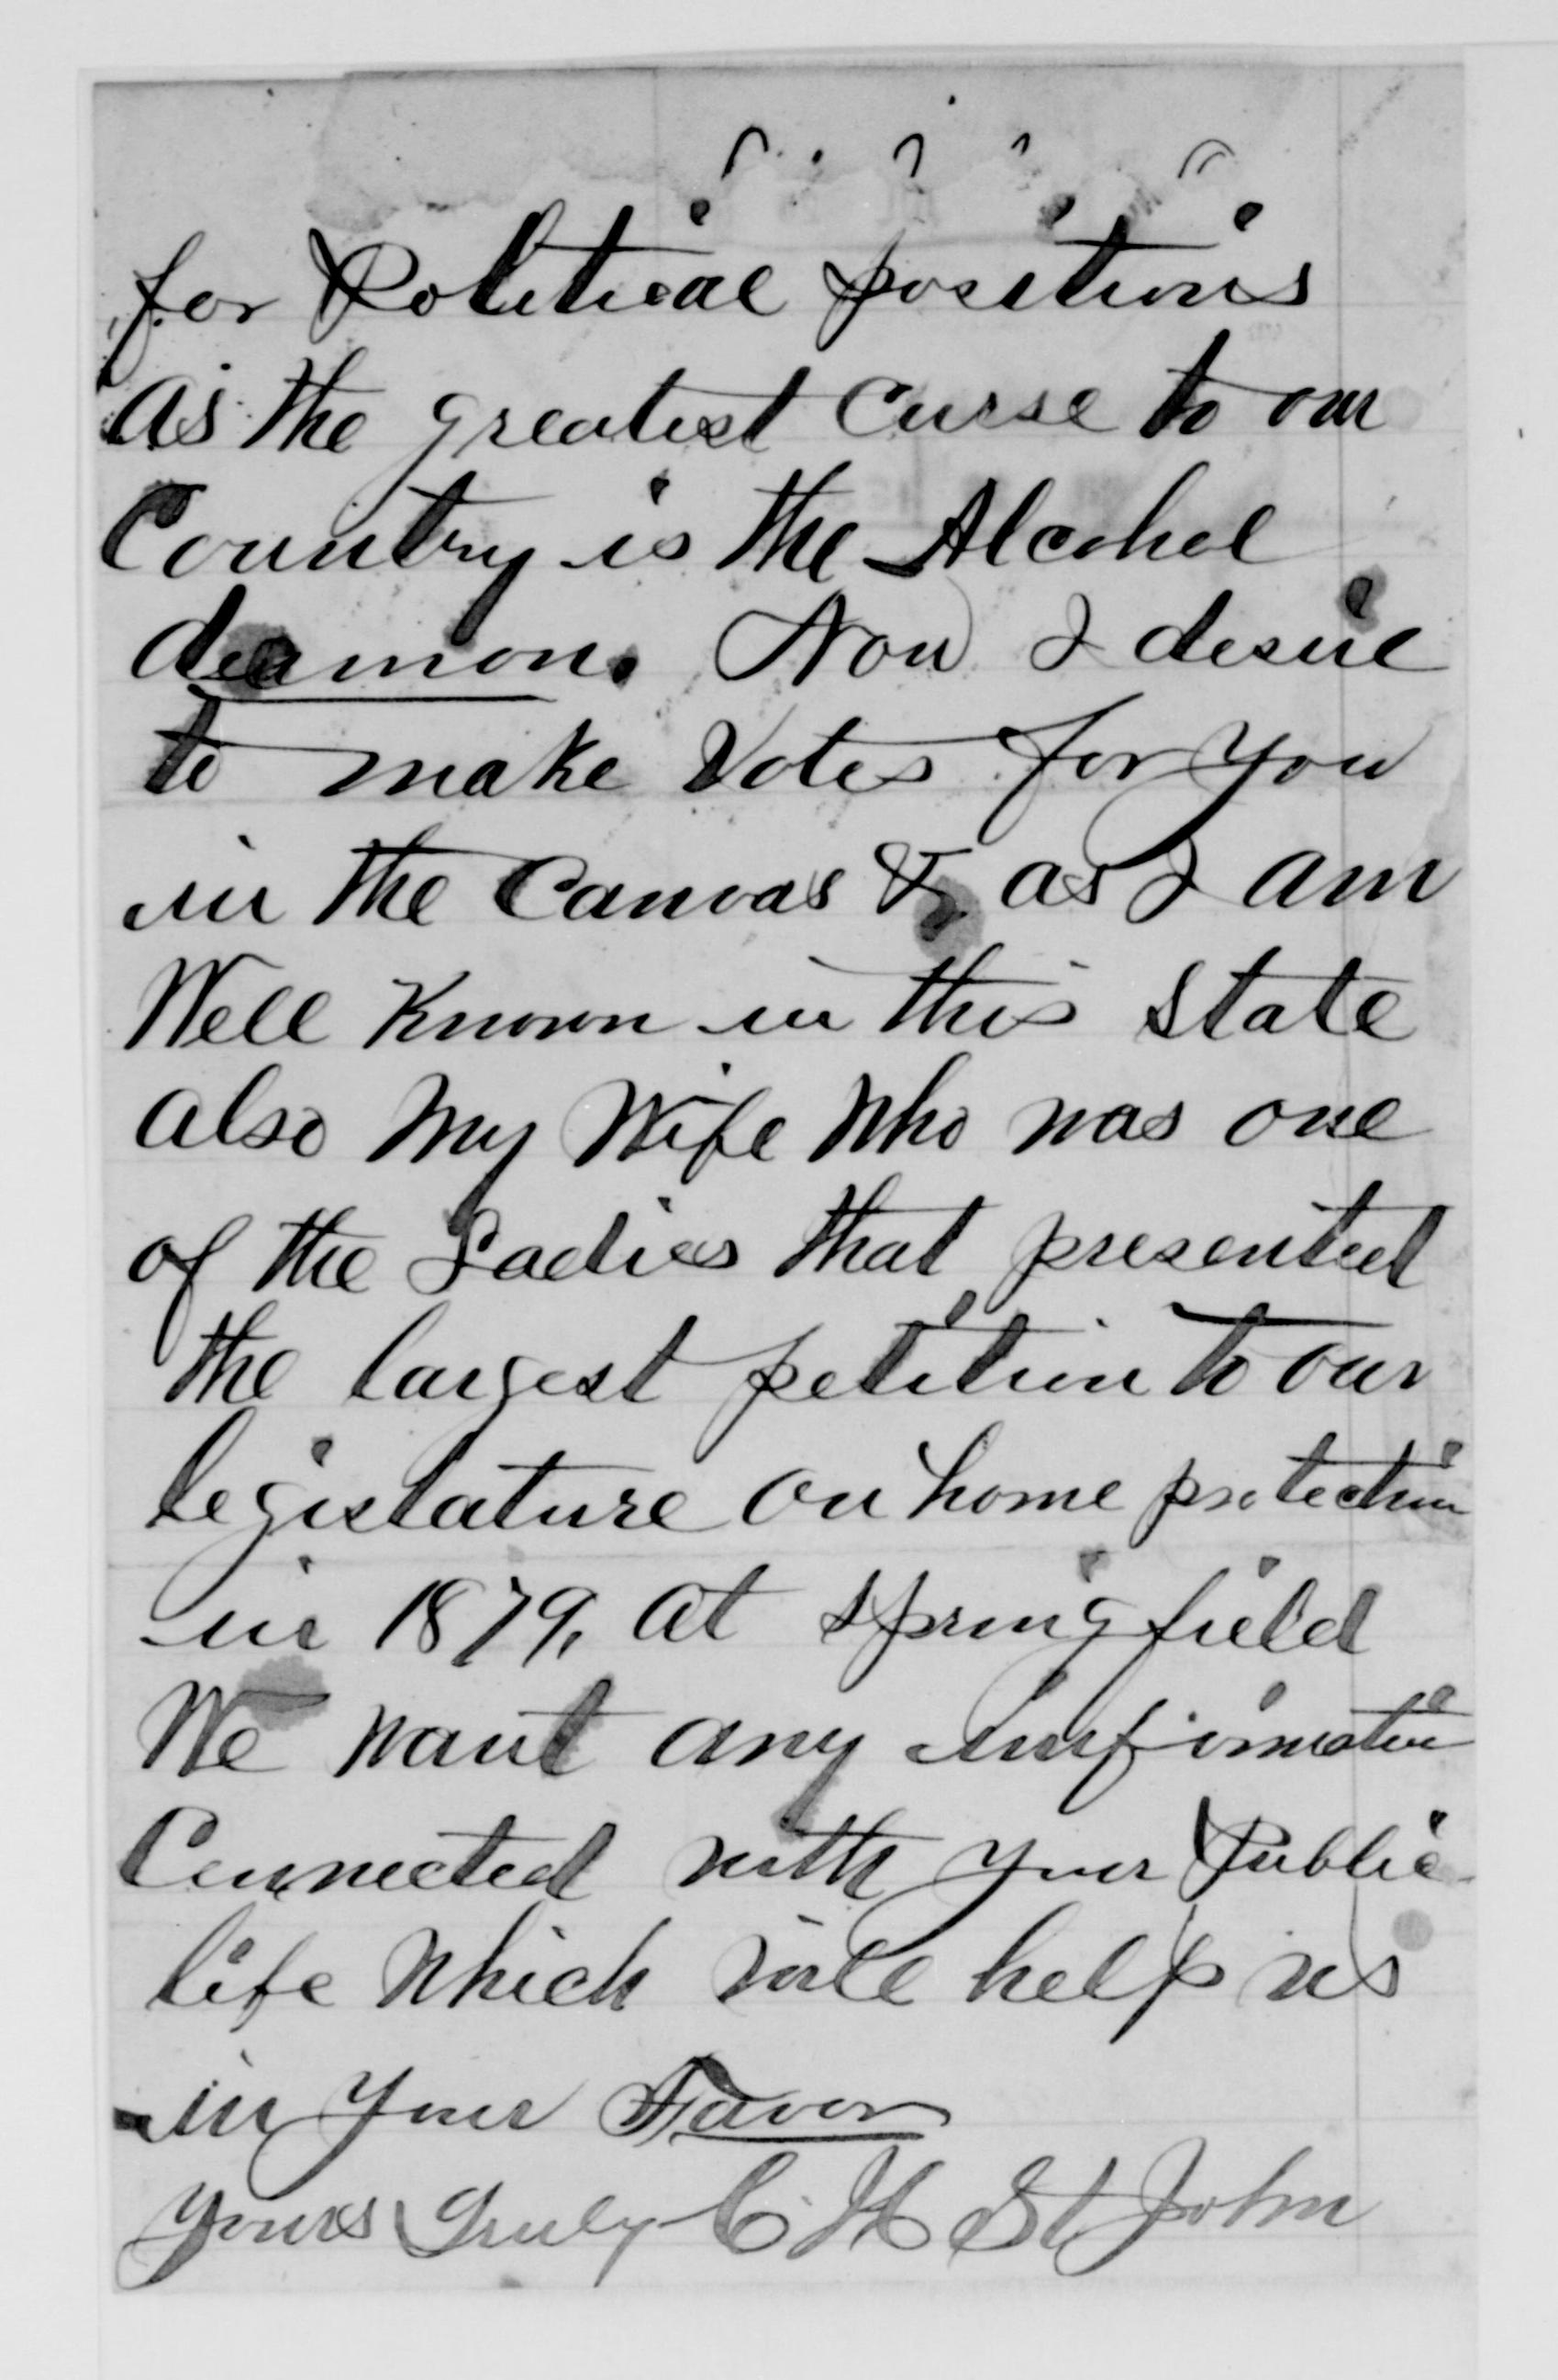 for Political positions
as the greatest Curse to our
Country is the Alcohol
deamon. Now I desire
to make Votes for you
in the Canvas & as I am
Well Known in this State
also My Wife Who was one
of the Ladies that presented
the largest petition to our
legislature on home protection
in 1879, at Springfield
We want any information
Connected with your Public
life Which will help us
in your Favor
Yours Truly C H St John